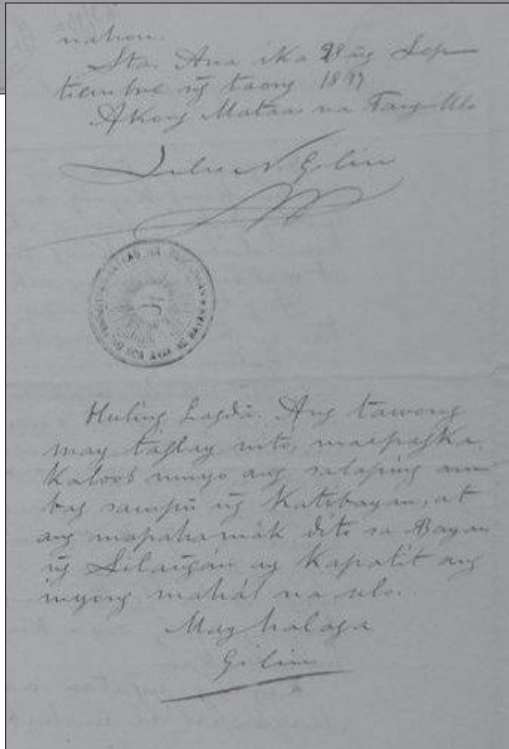 nahon.
Sta. Ana ika 28 ng̃ Sep
tiembre ng̃ taong 1897
Akong Mataas na Tang-Ulo
N. Gilin
Huling Lagdâ. Ang tawong
may taglay nito, maipagka
kaloob ninyo ang salaping am
bag sampû ng̃ Katibayan, at
ang mapahamák dito sa Bayan
ng̃ Silang̃án ay Kapalit ang
inyong mahál na ulo.
Maghalaga
Gilin